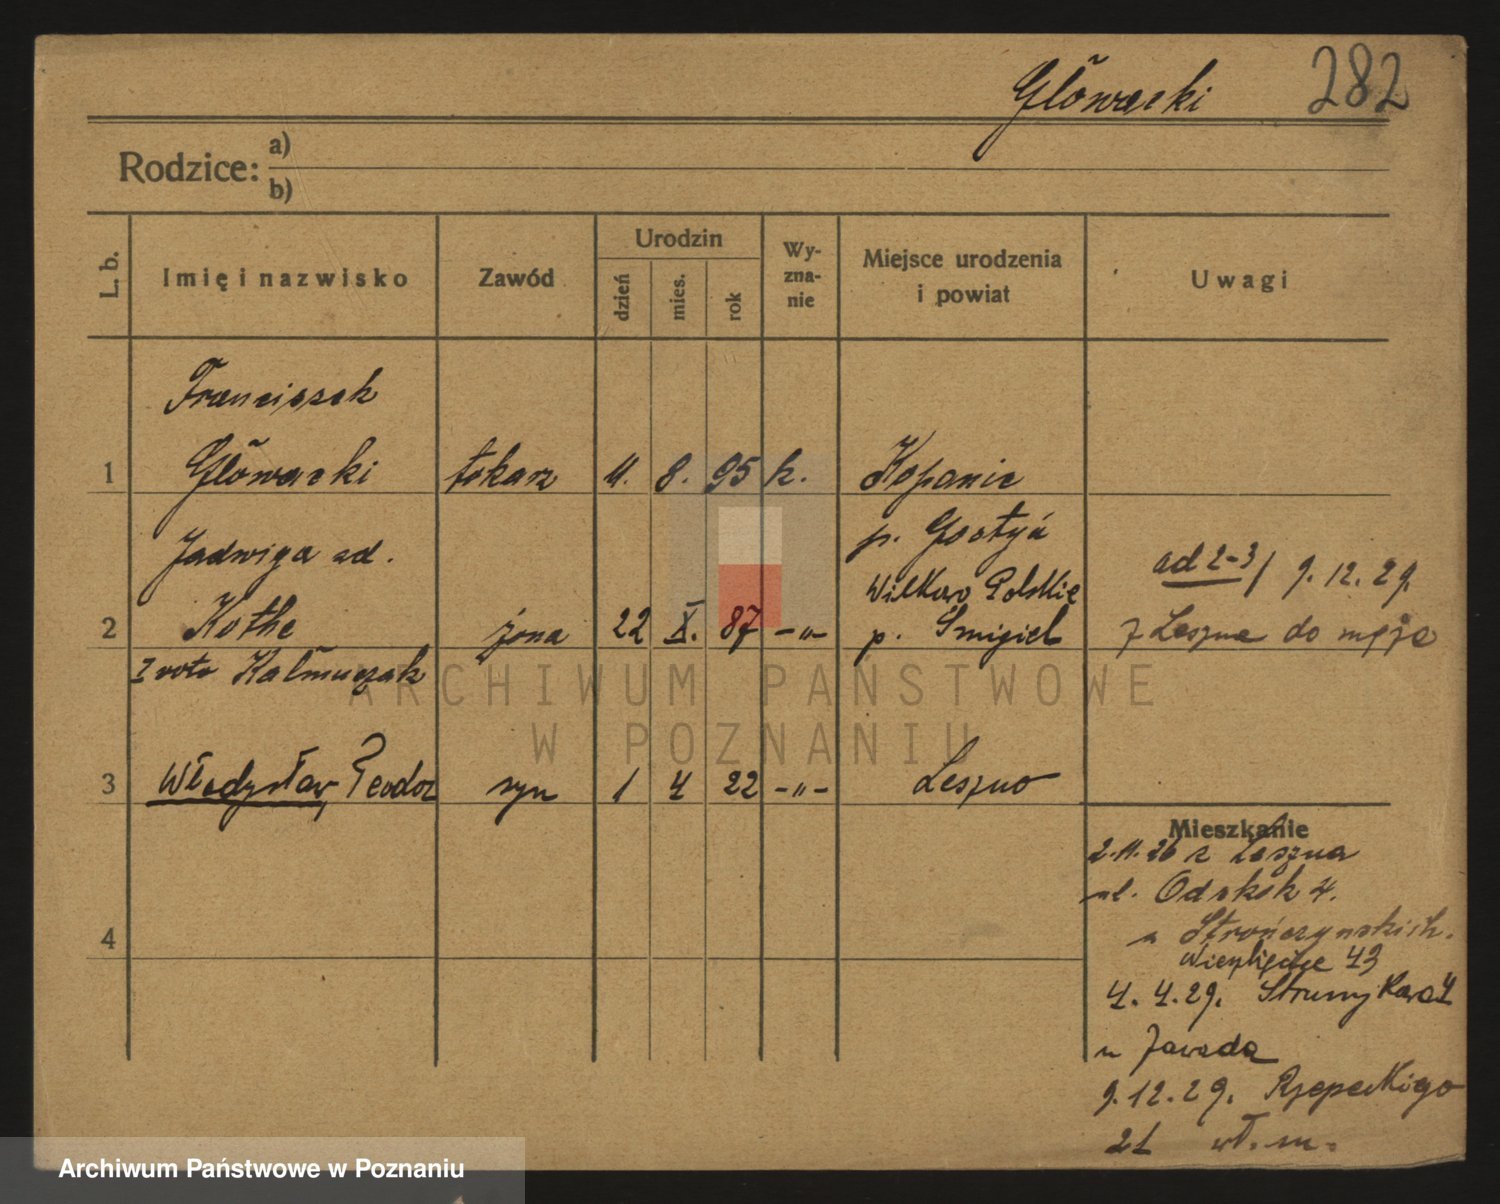 Główacki 282
Rodzice: a)
b)
L. b. Imię i nazwisko Zawód Urodzin dzień mies. rok Wy-zna-nie Miejsce urodzenia i powiat Uwagi
Franciszek
1 Główacki tokarz 11. 8. 95 k. Kopanie
p. Gostyń
Jadwiga ad. ad 2-3/ 9.12.29.
Wilkowo Polskie
2 Kothe żona 22 X. 87 -"- p. Śmigiel z Leszna do męża
I voto Kaźmierczak
ARCHIWUM PAŃSTWOWE
W POZNANIU
3 Władysław, Teodor syn 1 4 22 -"- Leszno
Mieszkanie
2.11.26 z Leszna
ul. 4.
4 u Strończyńskich.
43
4.4.29.
u Zawada
9.12.29. Rzepeckiego
21 wł. m.
Archiwum Państwowe w Poznaniu